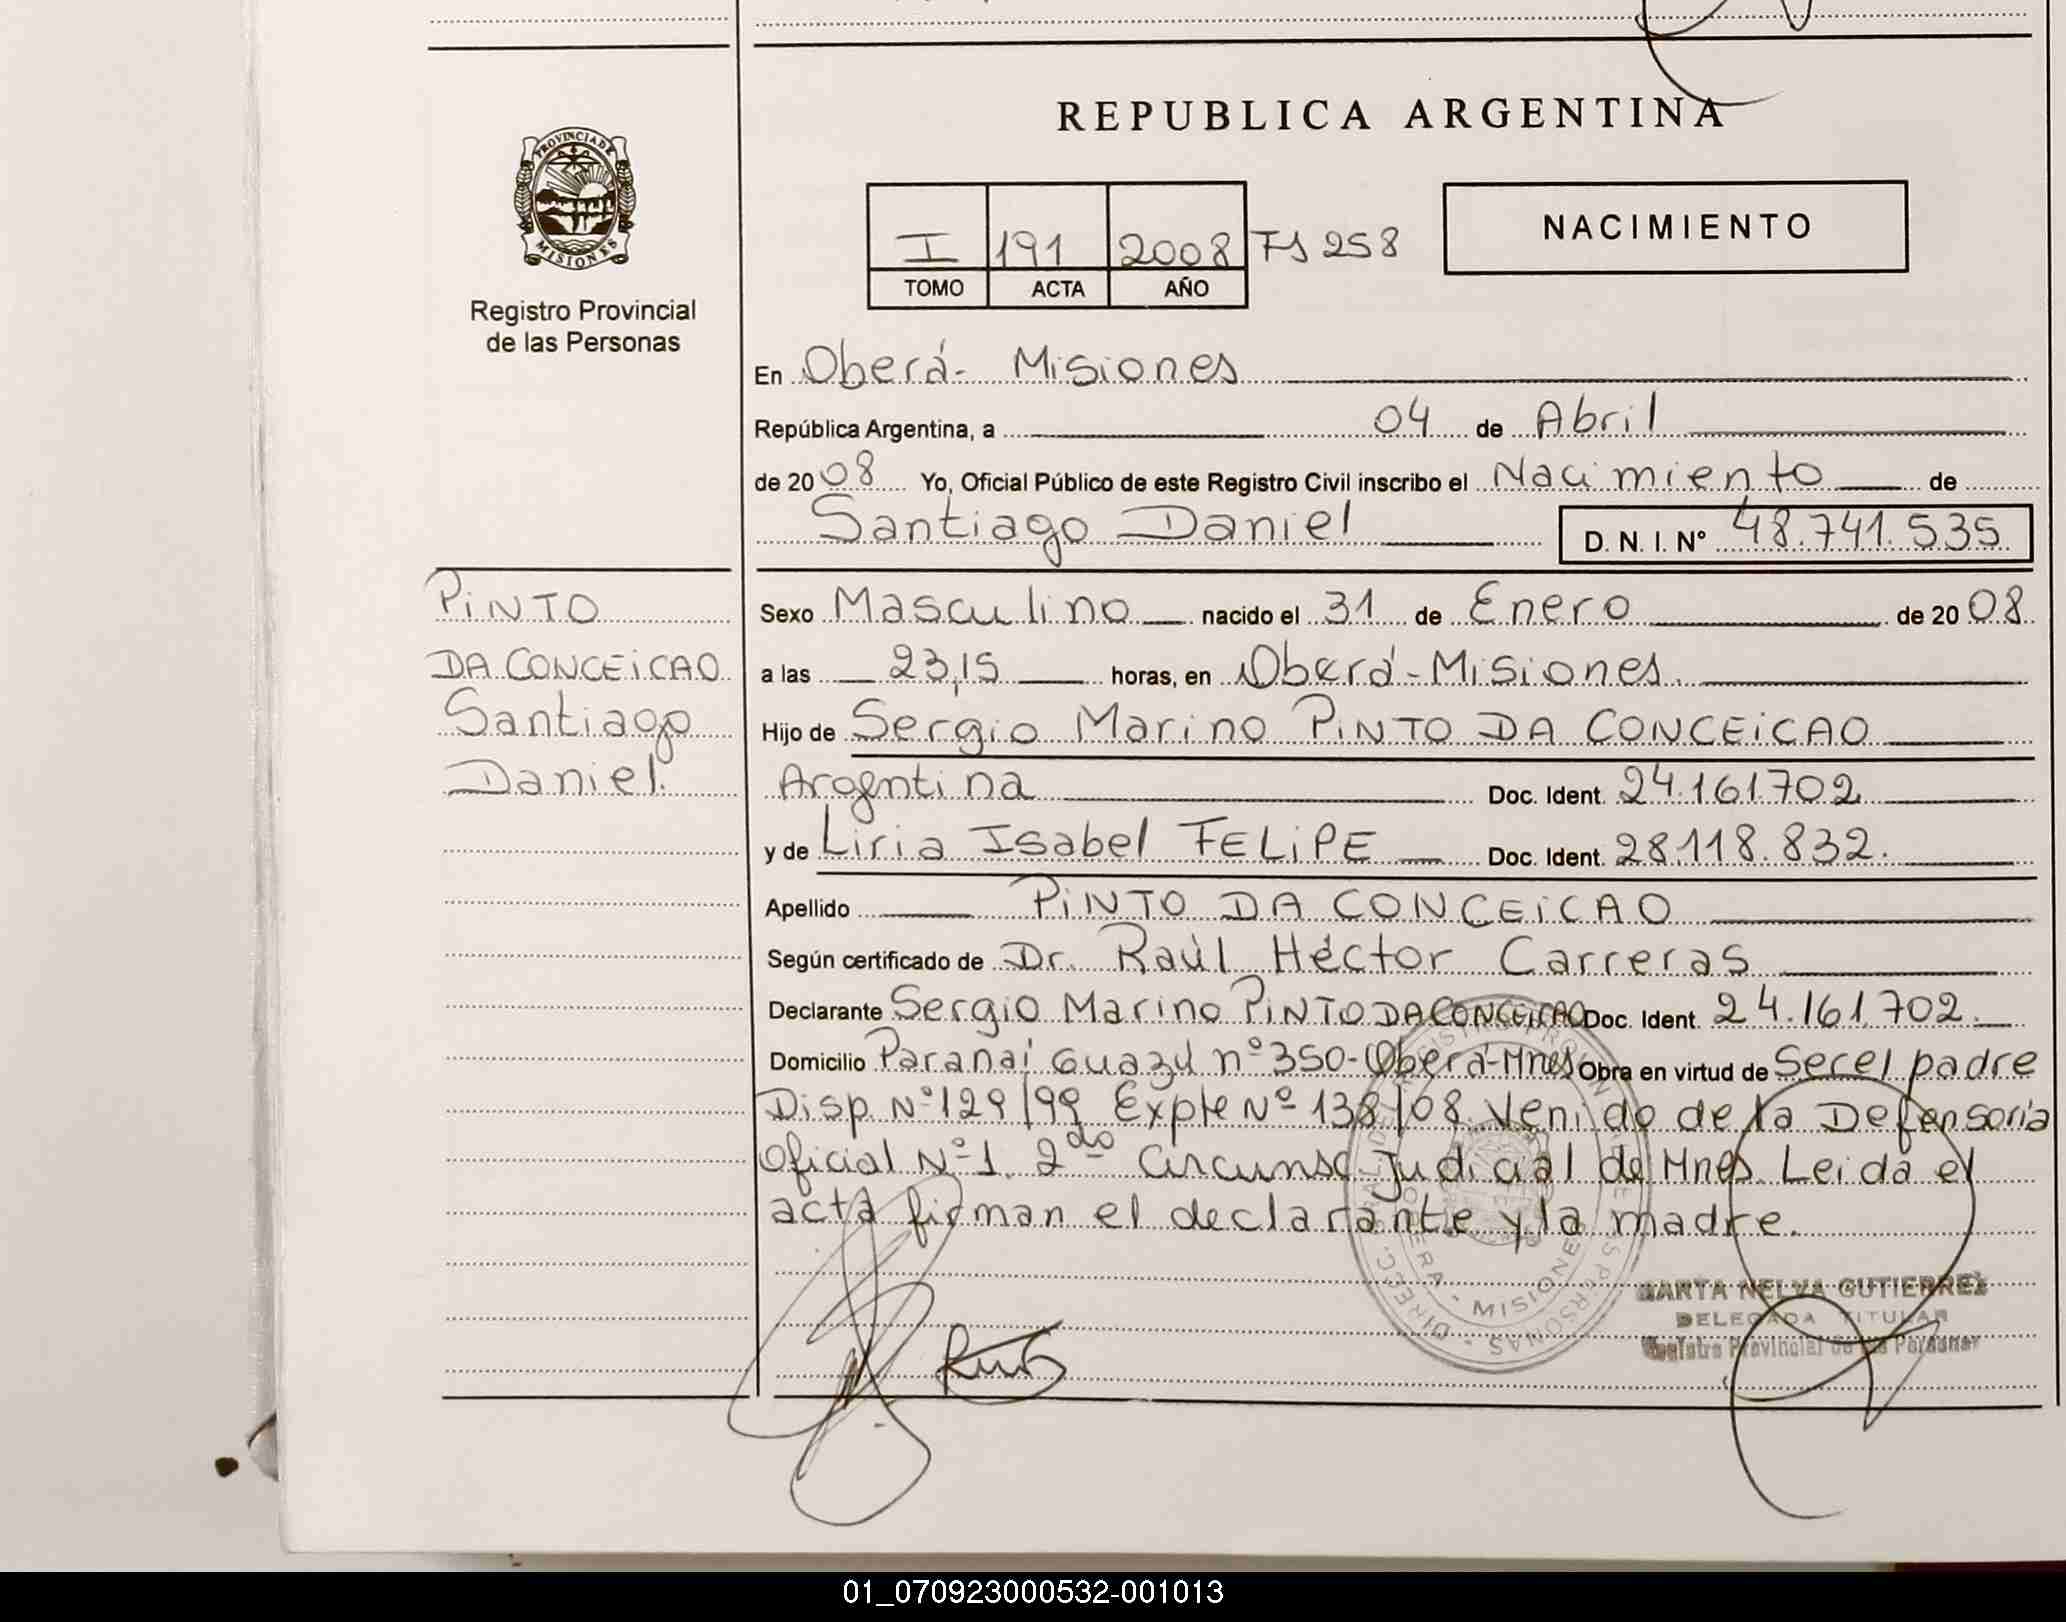 REPUBLICA ARGENTINA
PROVINCIA DE MISIONES
Registro Provincial
de las Personas
I 191 2008 Fs 258
TOMO ACTA AÑO
NACIMIENTO
En Oberá- Misiones
República Argentina, a 04 de Abril
de 2008 Yo, Oficial Público de este Registro Civil inscribo el Nacimiento de
Santiago Daniel D. N. I. N° 48.741.535
PiNTO
DA CONCEiCAO
Santiago
Daniel.
Sexo Masculino nacido el 31 de Enero de 2008.
a las 23,15 horas, en Oberá-Misiones.
Hijo de Sergio Marino PiNTO DA CONCEiCAO
Argentina Doc. Ident. 24.161.702
y de Liria Isabel FELiPE Doc. Ident. 28.118.832.
Apellido PiNTO DA CONCEiCAO
Según certificado de Dr. Raúl Héctor Carreras
Declarante Sergio Marino PiNTO DA CONCEiCAO Doc. Ident. 24.161.702.
Domicilio Paranaí Guazú nº 350-Oberá-Mnes Obra en virtud de Ser el padre
Disp. Nº 129/99 Expte Nº 138/08 Venido de la Defensoría
Oficial Nº 1. 2do Circunsc Judicial de Mnes. Leida el
acta firman el declarante y la madre.
MARTA NELVA GUTIERREZ
DELEGADA TITULAR
Registro Provincial de las Personas
01_070923000532-001013